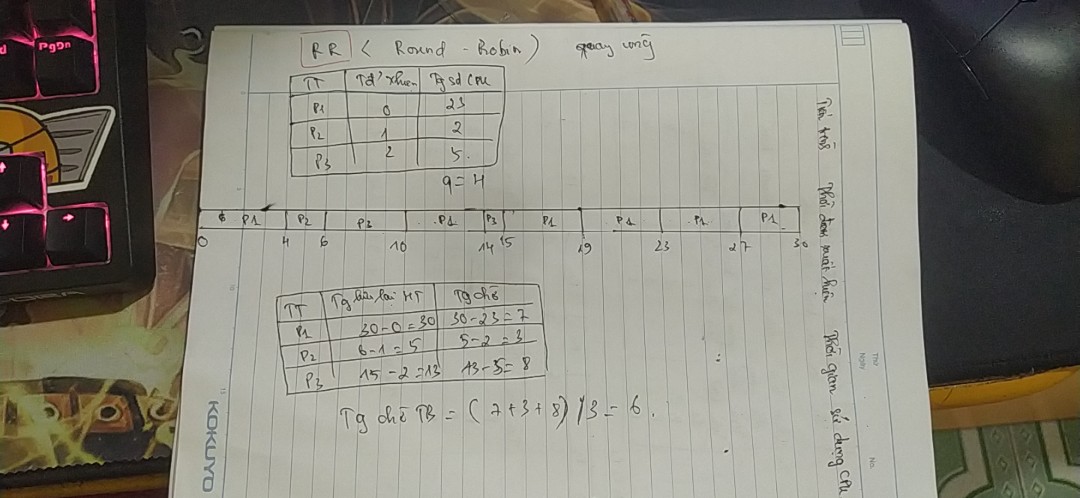 RR (Round - Robin) quay vòng
TT Tđ' xhiện Tg sd CPU
P1 0 23
P2 1 2
P3 2 5.
q = 4
P1 P2 P3 P1 P3 P1 P1 P1 P1
0 4 6 10 14 15 19 23 27 30
TT Tg lưu lại HT Tg chờ
P1 30-0=30 30-23=7
P2 6-1=5 5-2=3
P3 15-2=13 13-5=8
Tg chờ TB = (7+3+8)/3 = 6.
Thời điểm xuất hiện
Thời gian sử dụng CPU
Thứ
Ngày
No.
KOKUYO
PgDn